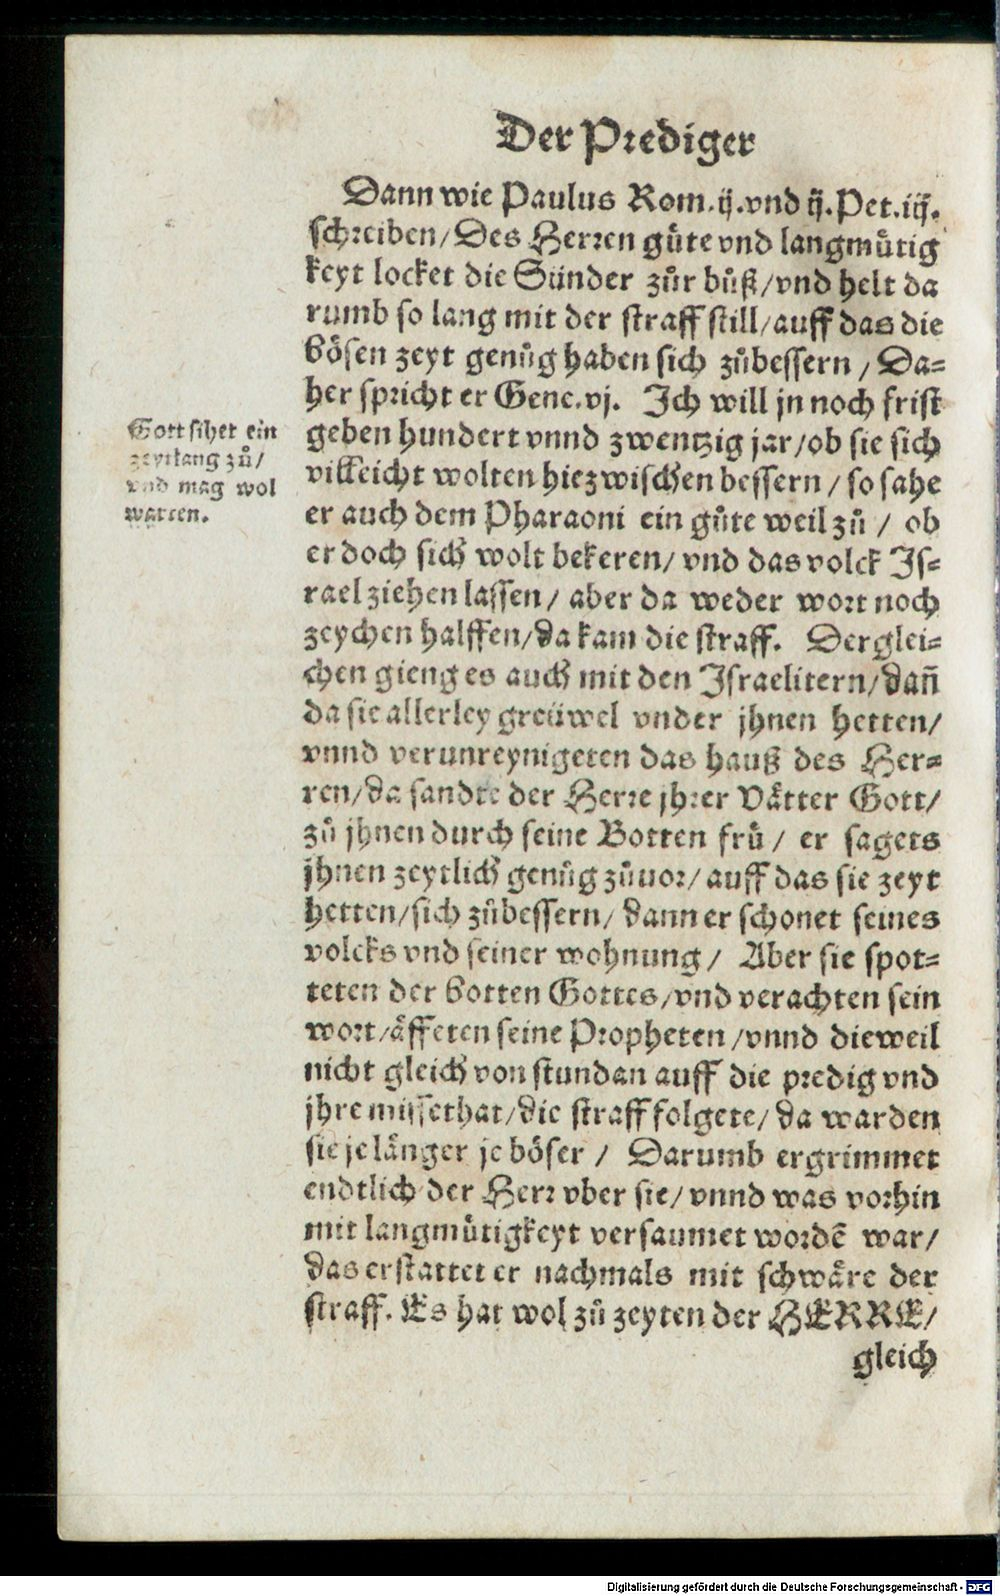 Der Prediger
Dann wie Paulus Rom.ij.vnd ij.Pet.iij.
schreiben/Des Herren guͤte vnd langmuͤtig
keyt locket die Sünder zuͦr buͦß/vnd helt da
rumb so lang mit der straff still/auff das die
boͤsen zeyt genuͦg haben sich zuͦbessern / Da-
her spricht er Gene.vj. Ich will jn noch frist
geben hundert vnnd zwentzig jar/ob sie sich
villeicht wolten hiezwischen bessern / so sahe
er auch dem Pharaoni ein guͤte weil zuͦ / ob
er doch sich wolt bekeren/ vnd das volck Is-
rael ziehen lassen / aber da weder wort noch
zeychen halffen/da kam die straff. Derglei-
chen gieng es auch mit den Israelitern/dañ
da sie allerley greüwel vnder jhnen hetten/
vnnd verunreynigeten das hauß des Her-
ren/da sandte der Herre jhrer Vaͤtter Gott/
zuͦ jhnen durch seine Botten fruͤ / er sagets
jhnen zeytlich genuͦg zuͦuor/ auff das sie zeyt
hetten/sich zuͦbessern/ dann er schonet seines
volcks vnd seiner wohnung / Aber sie spot-
teten der botten Gottes/vnd verachten sein
wort/aͤffeten seine Propheten /vnnd dieweil
nicht gleich von stundan auff die predig vnd
jhre missethat/die straff folgete/ da warden
sie je laͤnger je boͤser / Darumb ergrimmet
endtlich der Herr vber sie/ vnnd was vorhin
mit langmuͤtigkeyt versaumet wordẽ war/
das erstattet er nachmals mit schwaͤre der
straff. Es hat wol zuͦ zeyten der HERRE/
gleich
Gott sihet ein
zeytlang zuͦ/
vnd mag wol
warten.
Digitalisierung gefördert durch die Deutsche Forschungsgemeinschaft - DFG